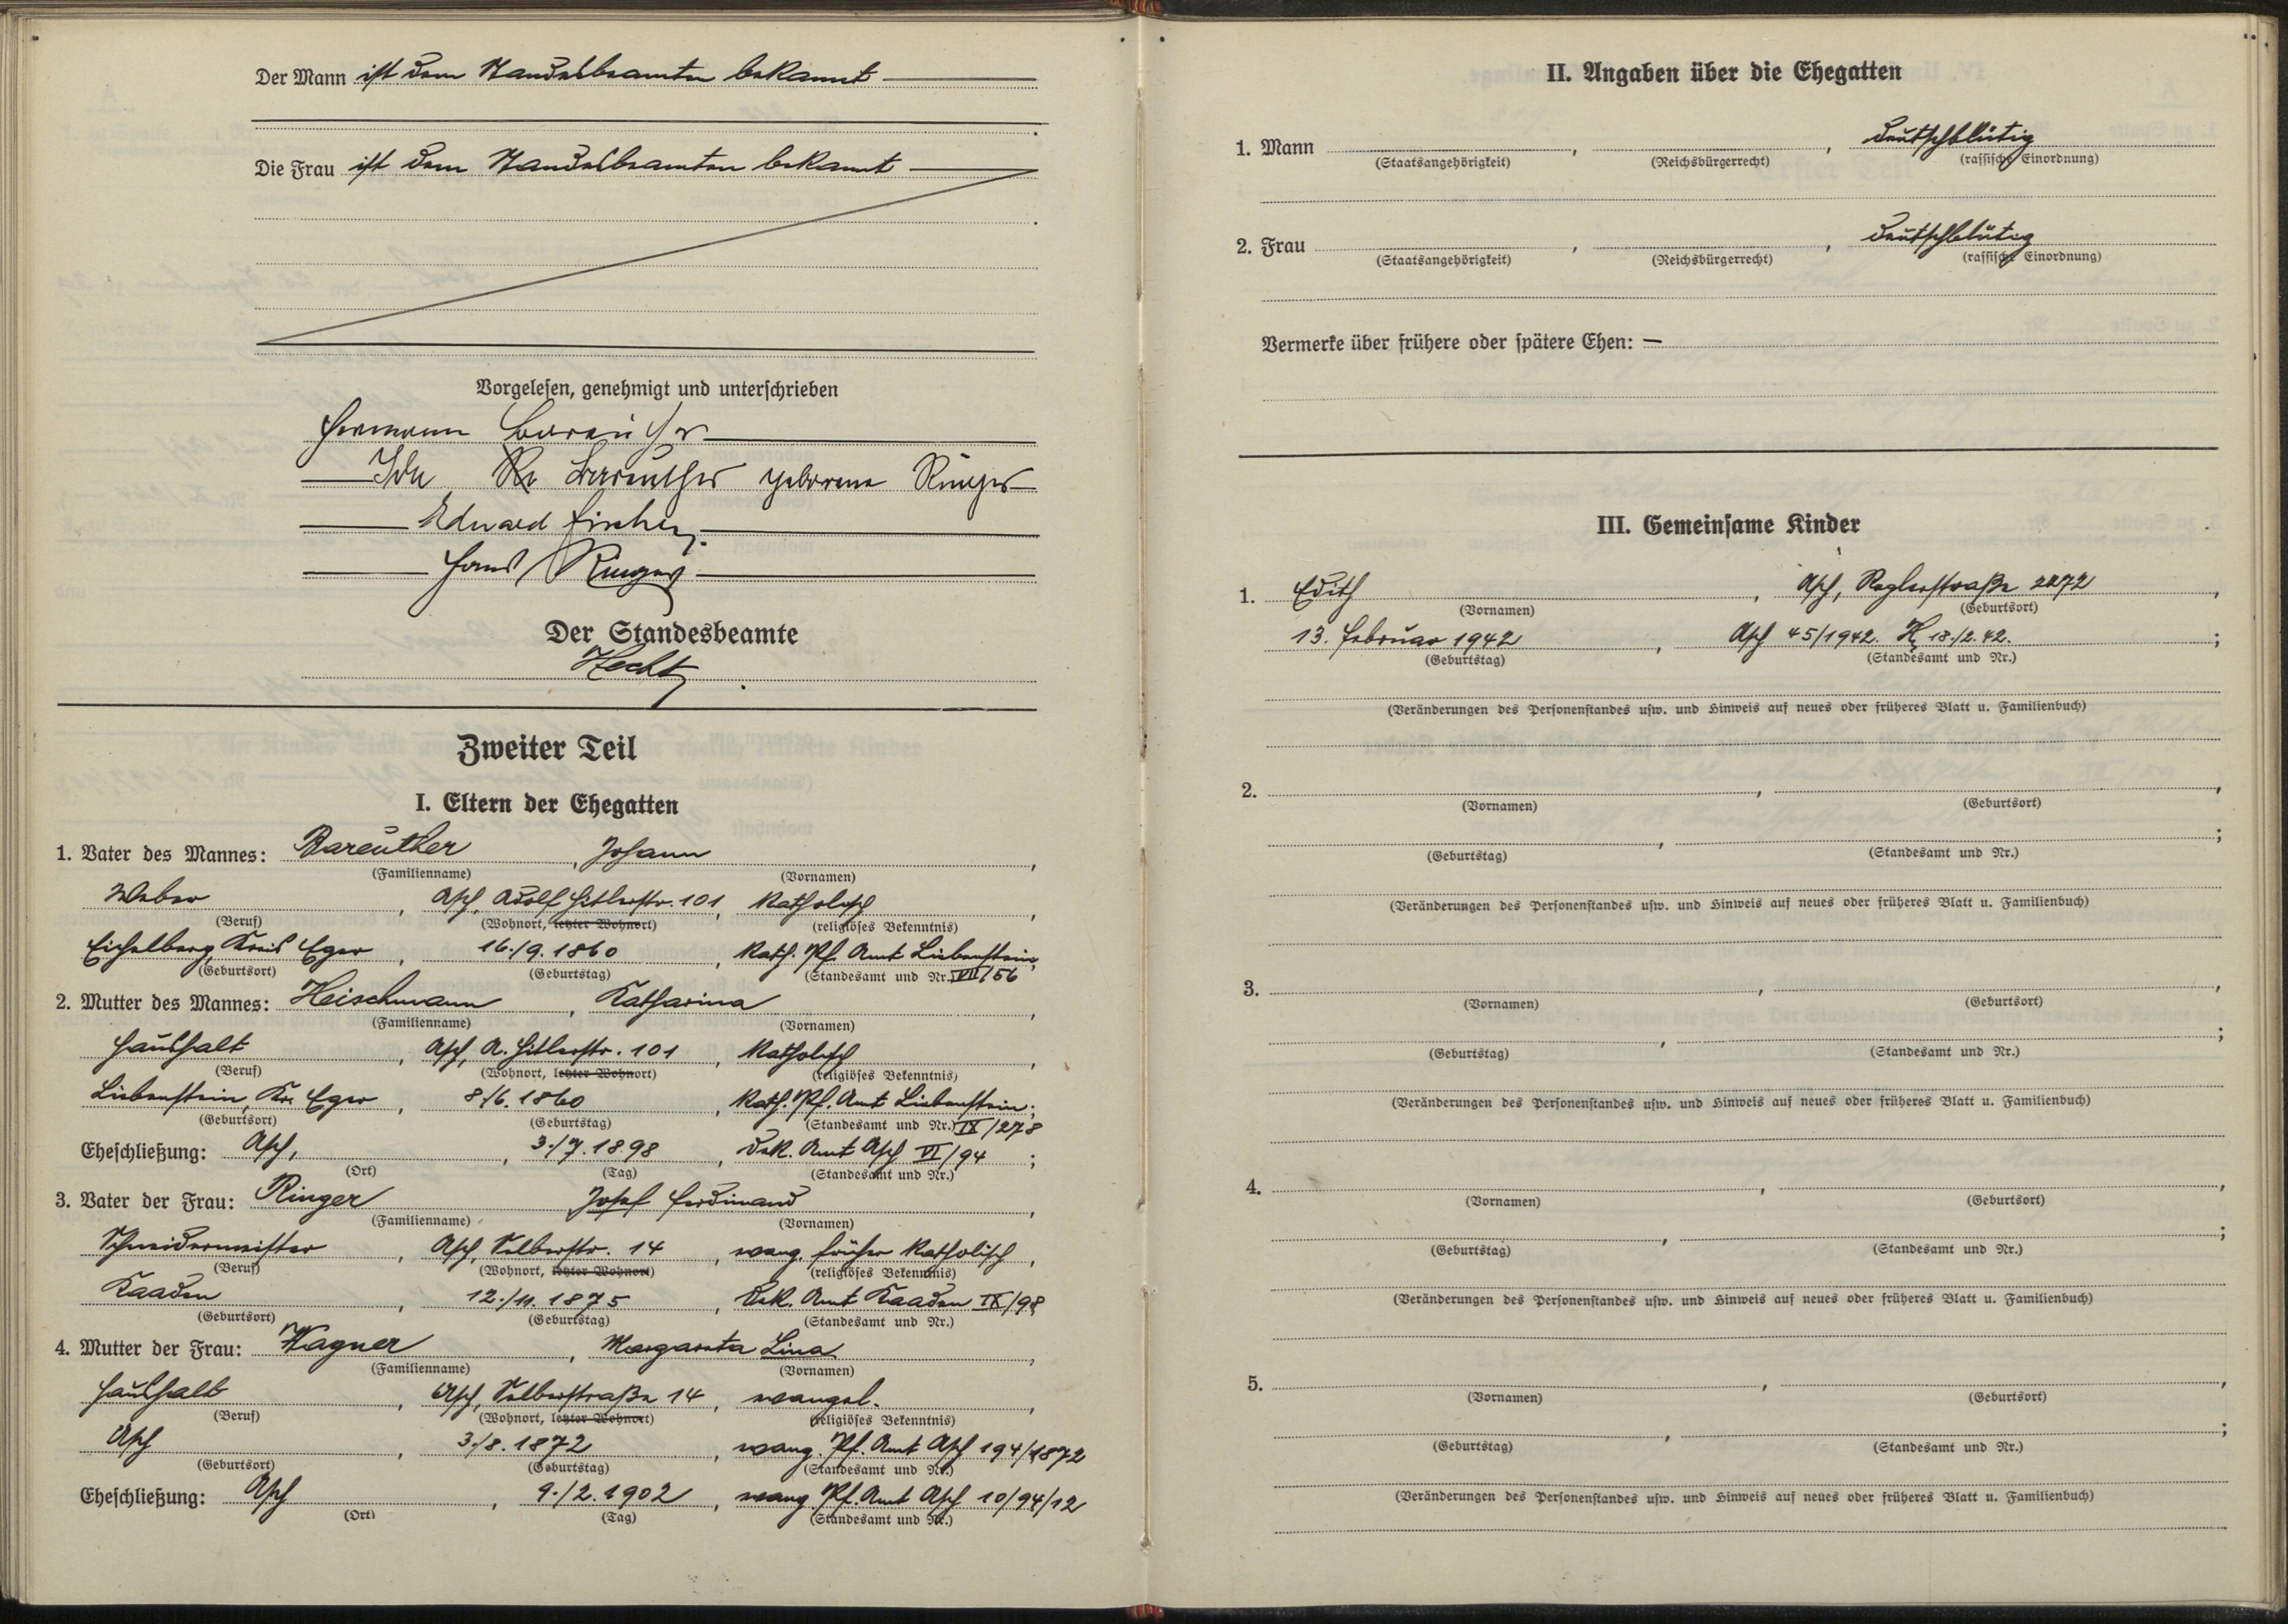 Der Mann ist dem Standesbeamten bekannt
Die Frau ist dem Standesbeamten bekannt
Vorgelesen, genehmigt und unterschrieben
Hermann Bareuther
Ida Bareuther geborene Ringer
Eduard Fischer
Hans Ringer
Der Standesbeamte
Hecht
Zweiter Teil
I. Eltern der Ehegatten
1. Vater des Mannes: Bareuther, Johann,
(Familienname) (Vornamen)
Weber, Asch, Adolf Hitlerstr. 101, katholisch,
(Beruf) (Wohnort, letzter Wohnort) (religiöses Bekenntnis)
Eichelberg, Kreis Eger, 16./9. 1860, kath. Pf. Amt Liebenstein;
(Geburtsort) (Geburtstag) (Standesamt und Nr.) VII/56
2. Mutter des Mannes: Heischmann, Katharina,
(Familienname) (Vornamen)
Haushalt, Asch, A. Hitlerstr. 101, katholisch,
(Beruf) (Wohnort, letzter Wohnort) (religiöses Bekenntnis)
Liebenstein, Kr. Eger, 8./6. 1860, kath. Pf. Amt Liebenstein;
(Geburtsort) (Geburtstag) (Standesamt und Nr.) IX/278
Eheschließung: Asch, 3./7. 1898, Dek. Amt Asch VI/94;
(Ort) (Tag) (Standesamt und Nr.)
3. Vater der Frau: Ringer Josef Ferdinand,
(Familienname) (Vornamen)
Schneidermeister, Asch, Selberstr. 14, evang. früher katholisch,
(Beruf) (Wohnort, letzter Wohnort) (religiöses Bekenntnis)
Kaaden, 12./11. 1875, Dek. Amt Kaaden IX/98
(Geburtsort) (Geburtstag) (Standesamt und Nr.)
4. Mutter der Frau: Wagner, Margareta Lina,
(Familienname) (Vornamen)
Haushalt, Asch, Selberstraße 14, evangel.,
(Beruf) (Wohnort, letzter Wohnort) (religiöses Bekenntnis)
Asch, 3./8. 1872, evang. Pf. Amt Asch 194/1872
(Geburtsort) (Geburtstag) (Standesamt und Nr.)
Eheschließung: Asch, 9./2. 1902, evang. Pf. Amt Asch 10/94/12
(Ort) (Tag) (Standesamt und Nr.)
II. Angaben über die Ehegatten
1. Mann, , deutschblütig
(Staatsangehörigkeit) (Reichsbürgerrecht) (rassische Einordnung)
2. Frau, , deutschblütig
(Staatsangehörigkeit) (Reichsbürgerrecht) (rassische Einordnung)
Vermerke über frühere oder spätere Ehen: —
III. Gemeinsame Kinder
1. Edith, Asch, Roglerstraße 2072,
(Vornamen) (Geburtsort)
13. Februar 1942, Asch 45/1942. 18./2. 42.;
(Geburtstag) (Standesamt und Nr.)
(Veränderungen des Personenstandes usw. und Hinweis auf neues oder früheres Blatt u. Familienbuch)
2. , ,
(Vornamen) (Geburtsort)
, ;
(Geburtstag) (Standesamt und Nr.)
(Veränderungen des Personenstandes usw. und Hinweis auf neues oder früheres Blatt u. Familienbuch)
3. , ,
(Vornamen) (Geburtsort)
, ;
(Geburtstag) (Standesamt und Nr.)
(Veränderungen des Personenstandes usw. und Hinweis auf neues oder früheres Blatt u. Familienbuch)
4. , ,
(Vornamen) (Geburtsort)
, ;
(Geburtstag) (Standesamt und Nr.)
(Veränderungen des Personenstandes usw. und Hinweis auf neues oder früheres Blatt u. Familienbuch)
5. , ,
(Vornamen) (Geburtsort)
, ;
(Geburtstag) (Standesamt und Nr.)
(Veränderungen des Personenstandes usw. und Hinweis auf neues oder früheres Blatt u. Familienbuch)